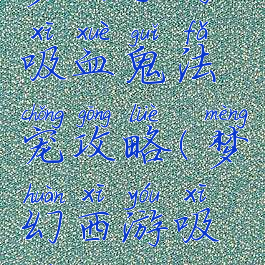 xī xuè guǐ fǎ
吸血鬼法
chǒng gōng lüè mèng
宠攻略(梦
huàn xī yóu xī
幻西游吸